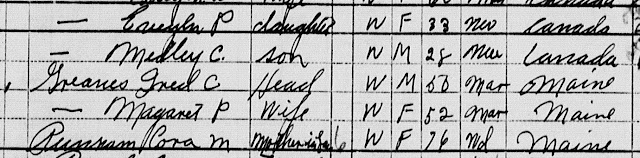 — Evelyn P daughter W F 33 Nev Canada
— Medley C. son W M 28 Nev Canada
Greaves Fred C Head W M 50 Mar Maine
— Magaret P Wife W F 52 Mar Maine
Cora M Mother in law W F 76 Wd Maine